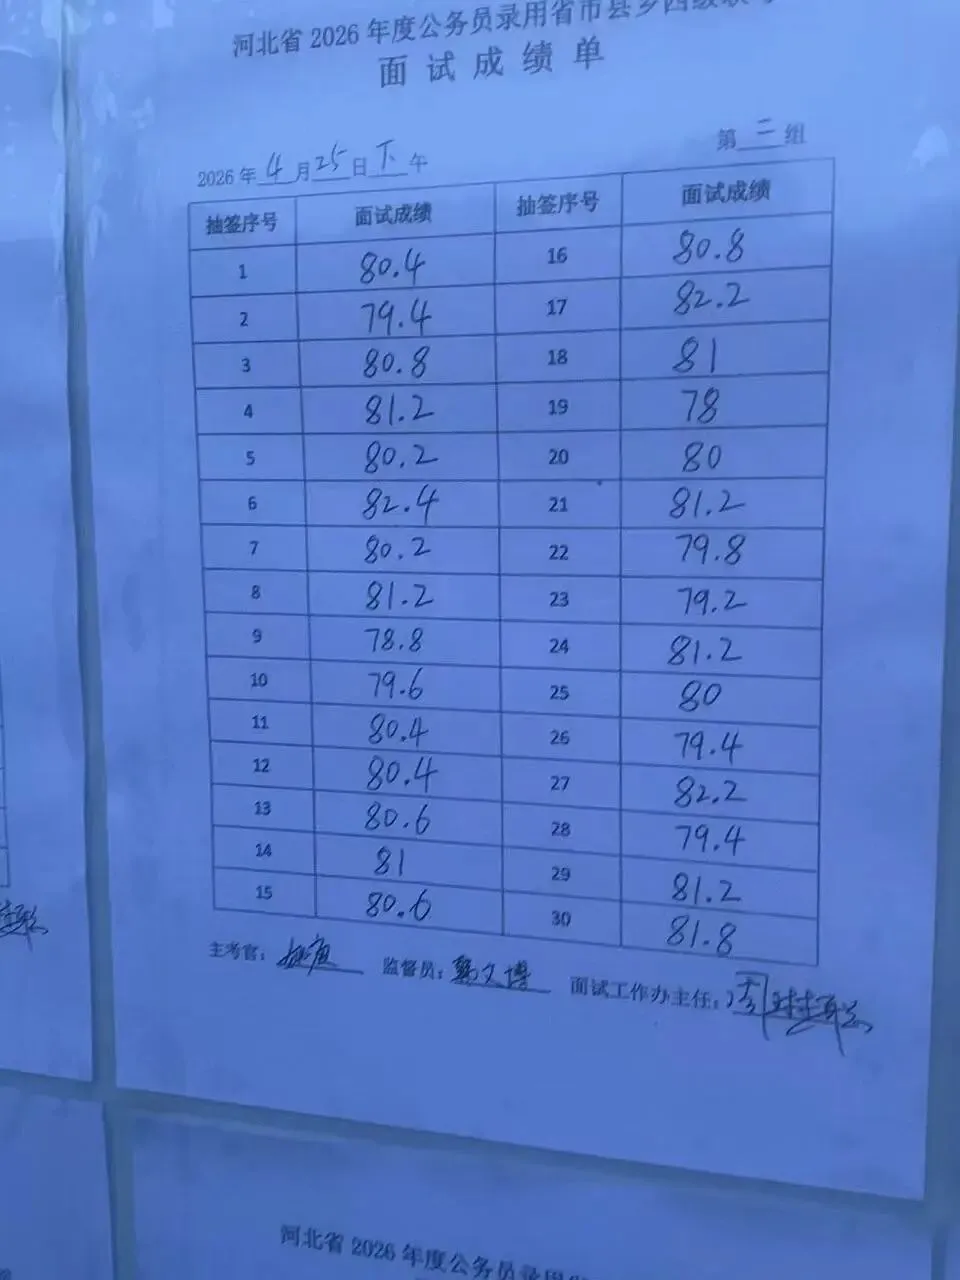 河北省2026年度公务员录用省市县乡四级联考
面试成绩单
2026年4月25日下午 第二组
抽签序号 面试成绩 抽签序号 面试成绩
1 80.4 16 80.8
2 79.4 17 82.2
3 80.8 18 81
4 81.2 19 78
5 80.2 20 80
6 82.4 21 81.2
7 80.2 22 79.8
8 81.2 23 79.2
9 78.8 24 81.2
10 79.6 25 80
11 80.4 26 79.4
12 80.4 27 82.2
13 80.6 28 79.4
14 81 29 81.2
15 80.6 30 81.8
主考官： 监督员：文博 面试工作办主任：
河北省2026年度公务员录用